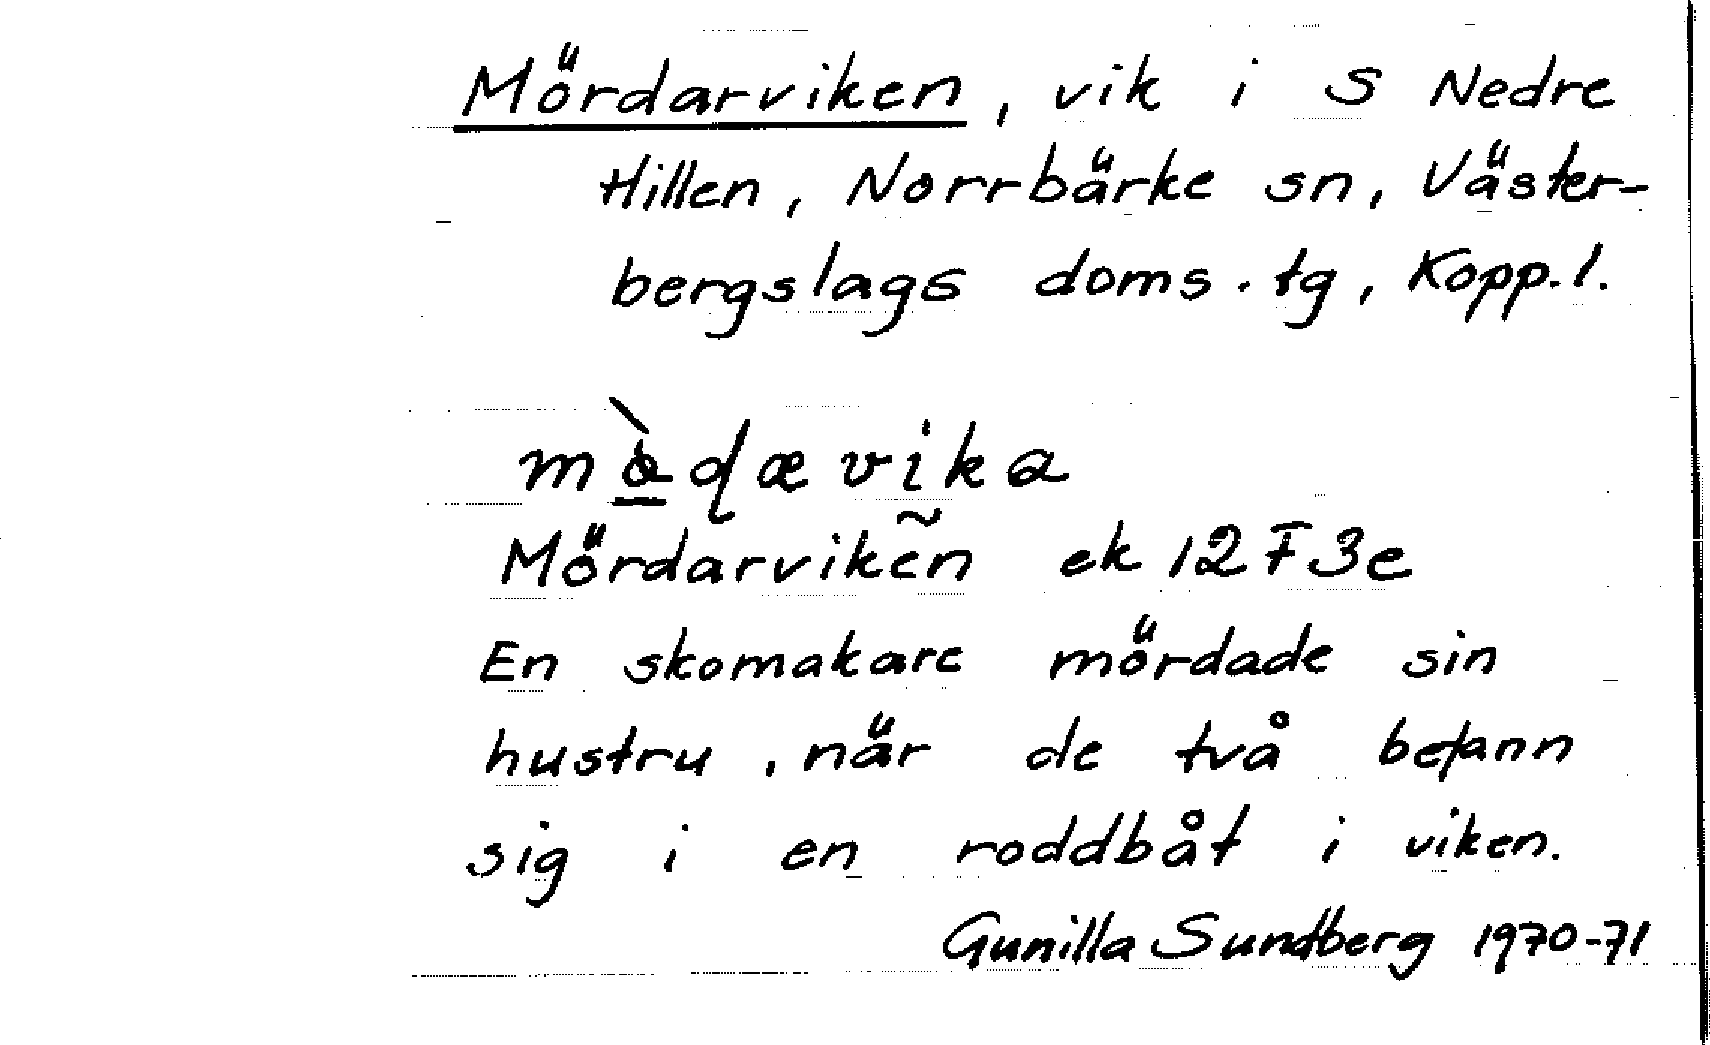 Mördarviken, vik i S Nedre
Hillen, Norrbärke sn, Väster-
bergslags doms. tg, Kopp. l.
ɖævika
Mördarviken͂ ek 12 F 3e
En skomakare mördade sin
hustru, när de två befann
sig i en roddbåt i viken.
Gunilla Sundberg 1970-71